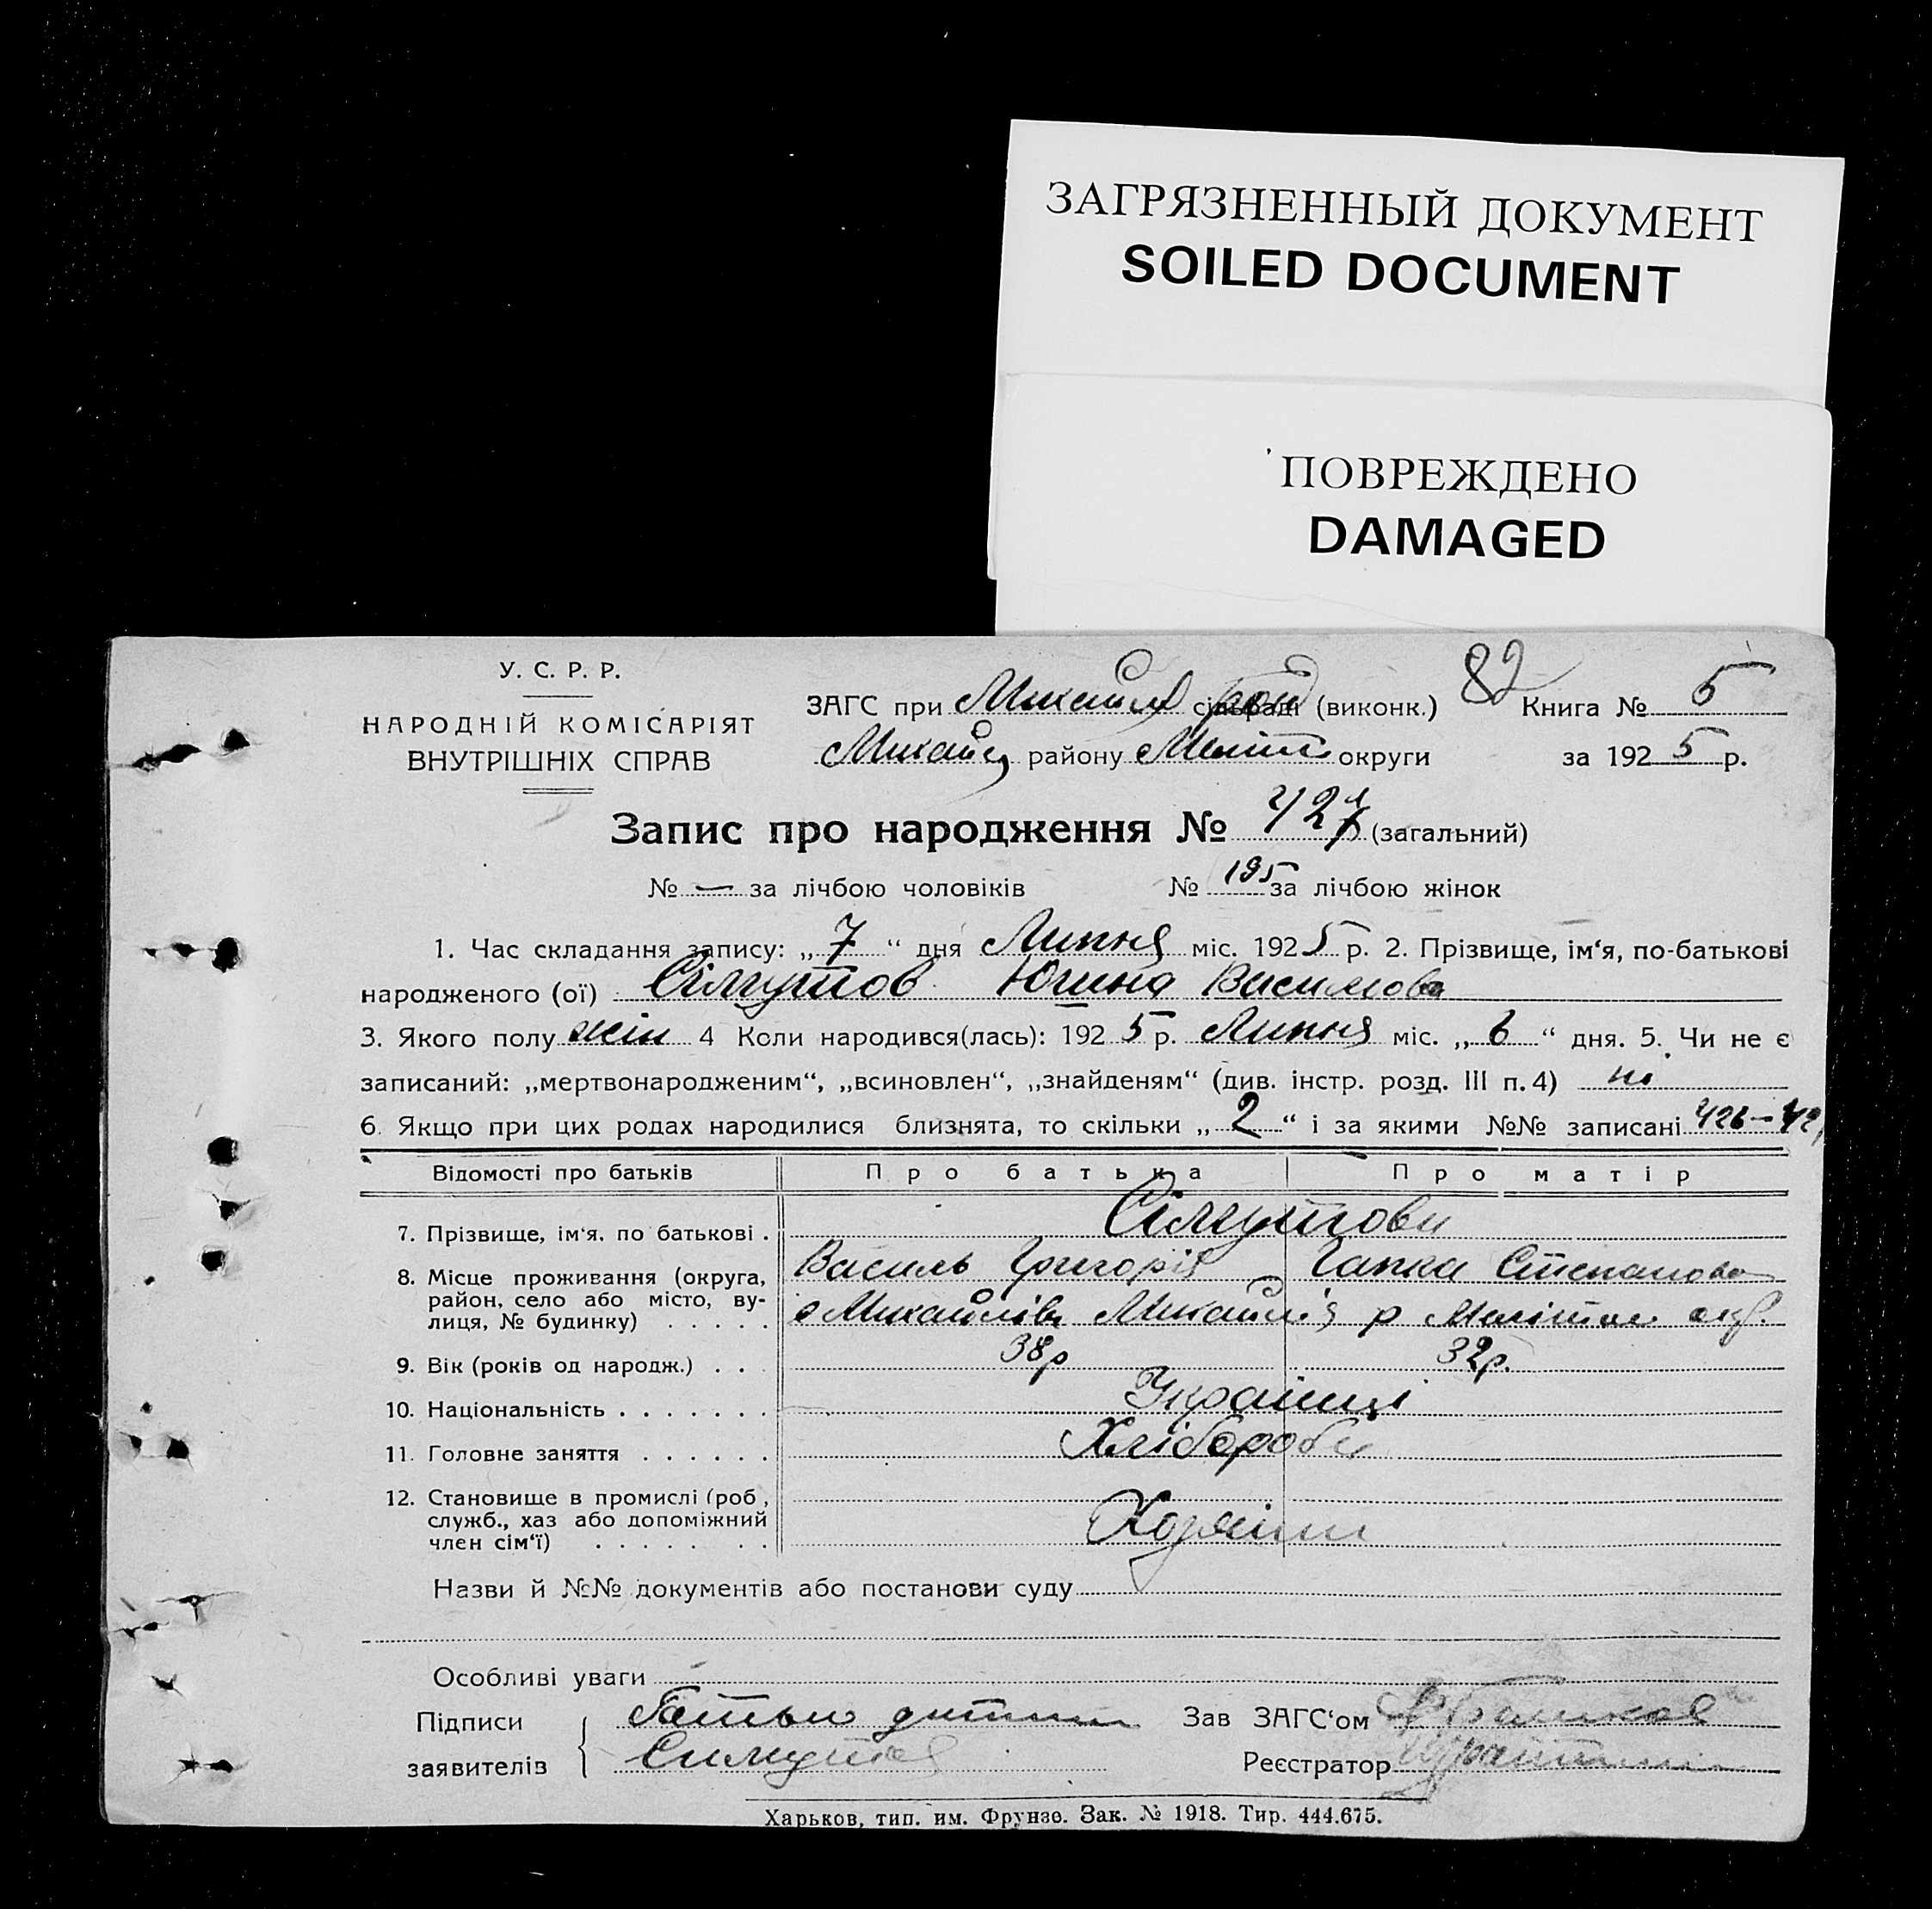 ЗАГРЯЗНЕННЫЙ ДОКУМЕНТ
SOILED DOCUMENT
ПОВРЕЖДЕНО
DAMAGED
У. С. Р. Р.
НАРОДНІЙ КОМІСАРІЯТ
ВНУТРІШНІХ СПРАВ
ЗАГС при Михайлів сільраді (виконк.) 82 Книга № 5
району Меліт округи за 1925 р.
Запис про народження № 427 (загальний)
№ — за лічбою чоловіків № 195 за лічбою жінок
1. Час складання запису: „7“ дня Липня міс. 1925 р. 2. Прізвище, ім‘я, по-батькові
народженого (ої) Сілчутов Югина Василова
3. Якого полу жін 4 Коли народився(лась): 1925 р. Липня міс. „6“ дня. 5. Чи не є
записаний: „мертвонародженим“, „всиновлен“, „знайденям“ (див. інстр. розд. III п. 4) ні
6. Якщо при цих родах народилися близнята, то скільки „2“ і за якими №№ записані 426—42
Відомості про батьків Про батька Про матір
7. Прізвище, ім‘я, по батькові . Сілчутови
Василь Григорів Гапка Степанова
8. Місце проживання (округа, район, село або місто, вулиця, № будинку) . . . . . с Михайлівк Михайлів р Меліто окр.
9. Вік (років од народж.) . . 38р 32р.
10. Національність . . . . . . . Українці
11. Головне заняття . . . . . . Хлібороби
12. Становище в промислі (роб., служб., хаз або допоміжний член сім‘ї) . . . . . . . Хозяїни
Назви й №№ документів або постанови суду
Особливі уваги
Підписи заявителів { Батько дитини
Зав ЗАГС‘ом
Реєстратор
Харьков, тип. им. Фрунзе. Зак. № 1918. Тир. 444.675.